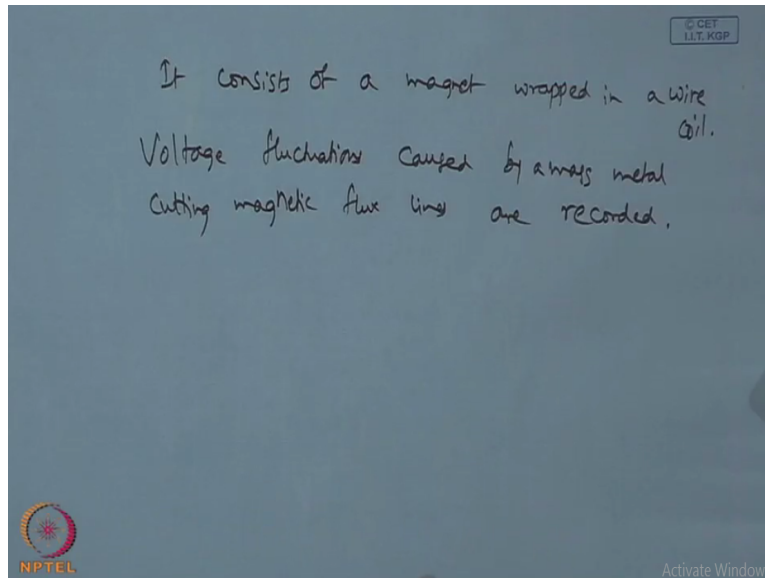 © CET
I.I.T. KGP
It consists of a magnet wrapped in a wire
coil.
Voltage fluctuations caused by a mass metal
cutting magnetic flux lines are recorded.
NPTEL
Activate Window